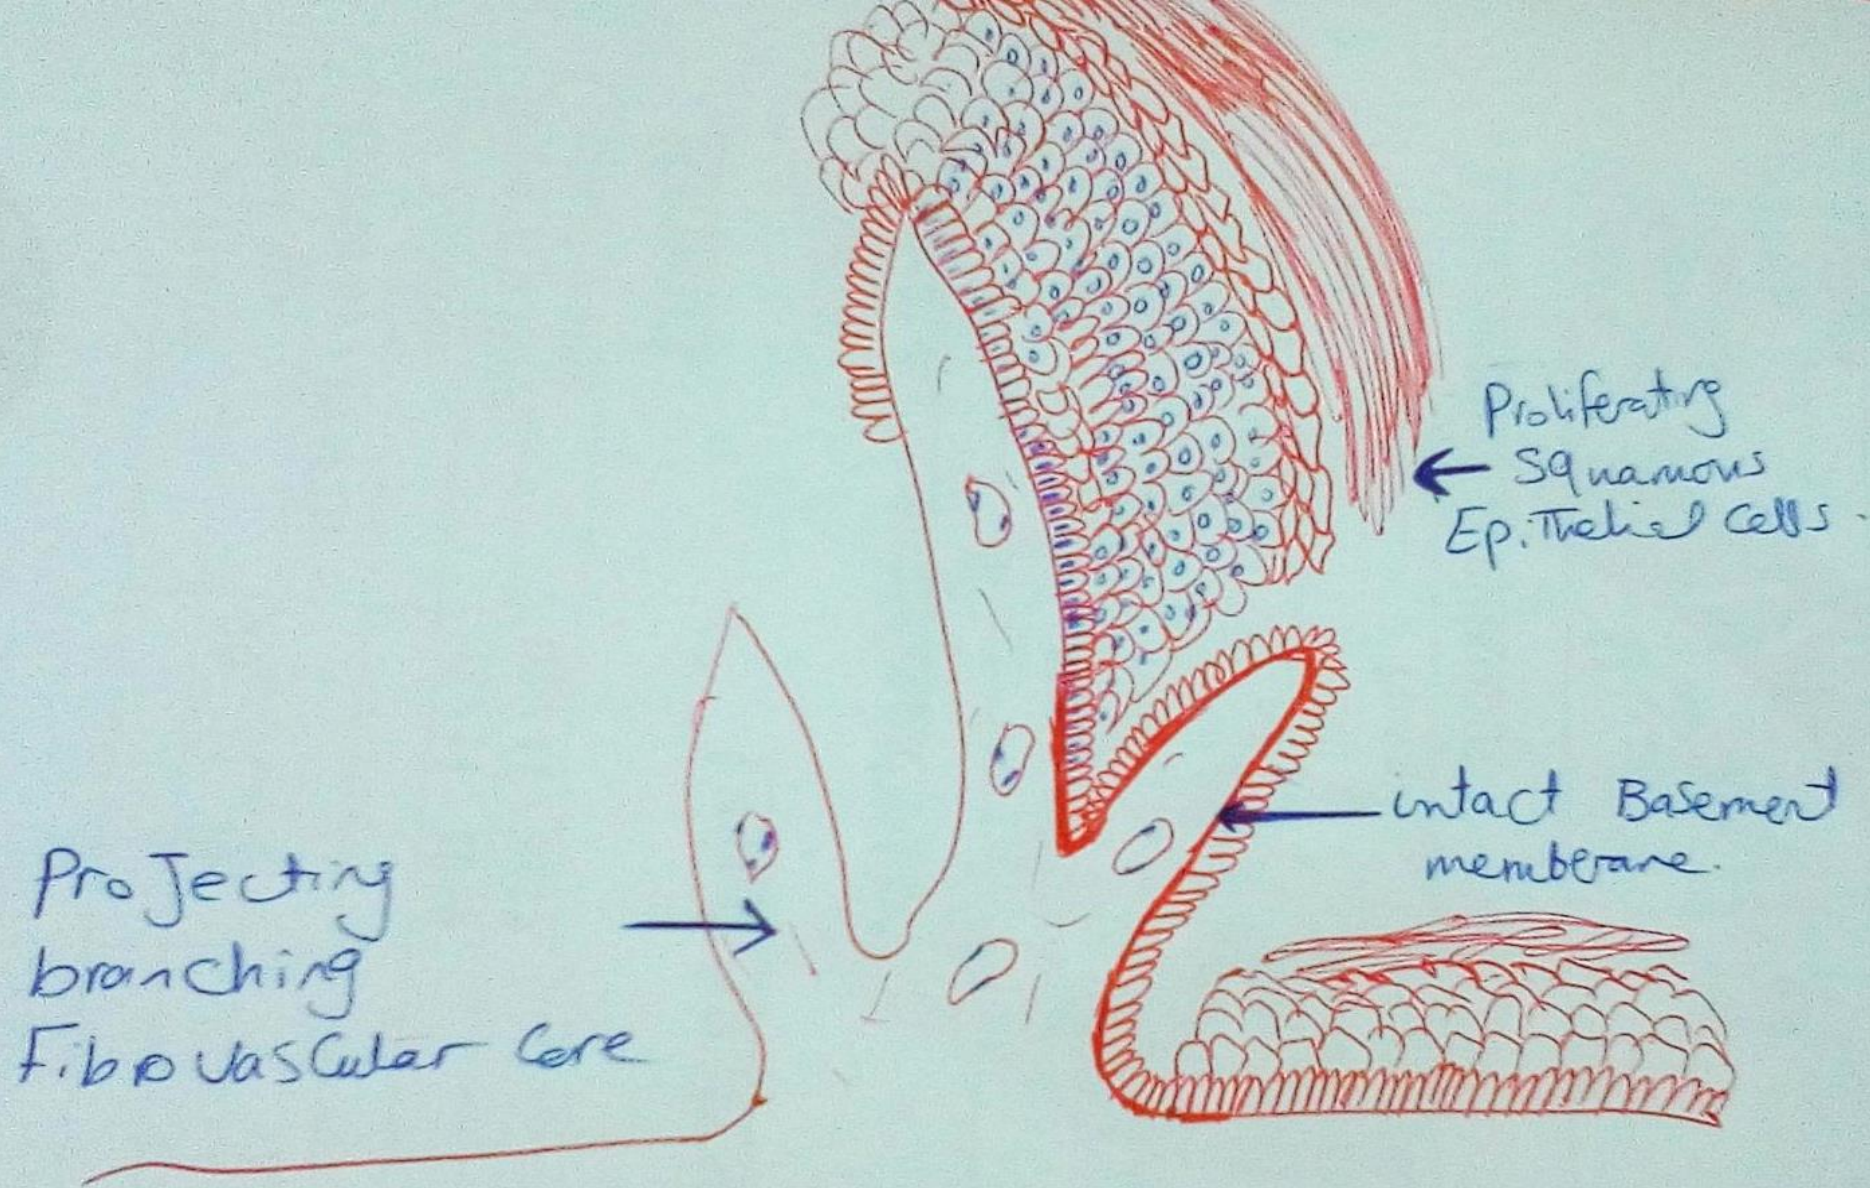 Proliferating
Squamous
Epithelial Cells.
intact Basement
memberane.
Projecting
branching
Fibrovascular Core